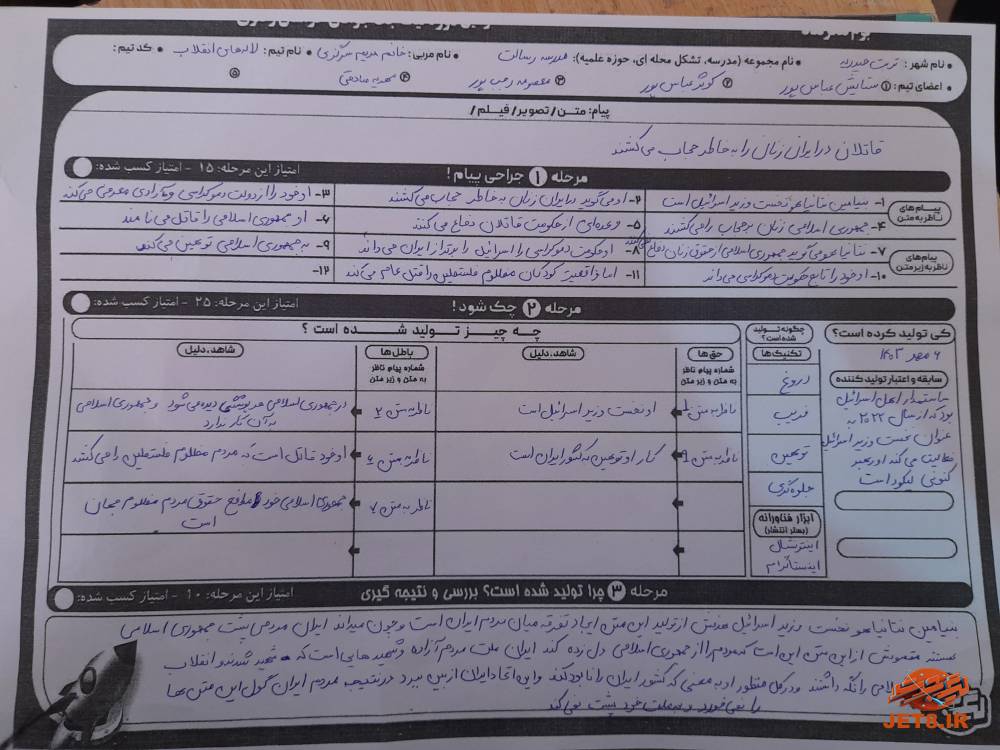 نام شهر: تربت حیدریه
نام مجموعه (مدرسه، تشکل محله ای، حوزه علمیه): مدرسه رسالت
نام مربی: خانم مریم
نام تیم: لاله‌های انقلاب
کد تیم:
اعضای تیم: ۱ ستایش عباس پور
۲ کوثر عباس پور
۳ معصومه رجب پور
۴ مهدیه صادقی
۵
پیام: متن/ تصویر/ فیلم/
قاتلان در ایران زنان را به خاطر حجاب می‌کشند
مرحله ۱ جراحی پیام!
امتیاز این مرحله: ۱۵ - امتیاز کسب شده:
پیام‌های ناظر به متن
۱- بنیامین نتانیاهو نخست وزیر اسرائیل است
۲- او می‌گوید در ایران زنان به خاطر حجاب می‌کشند
۳- او خود را از دولت دموکراسی و معرفی می‌کند
۴- جمهوری اسلامی زنان بی‌حجاب را می‌کشند
۵- و عده‌ای از حکومت قاتلان دفاع می‌کنند
۶- او جمهوری اسلامی را قاتل می‌نامند
پیام‌های ناظر به زیر متن
۷- نتانیاهو می‌گوید جمهوری اسلامی از حقوق زنان دفاع نمی‌کند
۸- او حکومت دموکراسی را اسرائیل را برتر از ایران می‌داند
۹- به جمهوری اسلامی توهین می‌کند
۱۰- او خود را تابع حکومت دموکراسی می‌داند
۱۱- اما در واقعیت کودکان مظلوم فلسطین را قتل عام می‌کند
۱۲-
مرحله ۲ چک شود!
امتیاز این مرحله: ۲۵ - امتیاز کسب شده:
کی تولید کرده است؟
۶ مهر ۱۴۰۳
سابقه و اعتبار تولید کننده
سیاستمدار اهل اسرائیل
بود که از سال ۲۰۲۲ به
عنوان نخست وزیر اسرائیل
فعالیت می کند او رهبر
کنونی لیکود است
چگونه تولید شده است؟
تکنیک‌ها
دروغ
فریب
توهین
جلوه‌گری
ابزار فناورانه
(بستر انتشار)
اینترنشنال
اینستاگرام
چه چیز تولید شده است ؟
حق‌ها
شاهد، دلیل
باطل‌ها
شاهد، دلیل
شماره پیام ناظر به متن و زیر متن
شماره پیام ناظر به متن و زیر متن
ناظر به متن ۱
او نخست وزیر اسرائیل است
ناظر به متن ۲
در جمهوری اسلامی هر پوششی دیده می‌شود و جمهوری اسلامی
به آن کار ندارد
ناظر به متن ۹
کار او توهین به کشور ایران است
ناظر به متن ۶
او خود قاتل است که مردم مظلوم فلسطین را می‌کشند
ناظر به متن ۷
جمهوری اسلامی خود مدافع حقوق مردم مظلوم جهان
است
مرحله ۳ چرا تولید شده است؟ بررسی و نتیجه گیری
امتیاز این مرحله: ۱۰ - امتیاز کسب شده:
بنیامین نتانیاهو نخست وزیر اسرائیل هدفش از تولید این متن ایجاد تفرقه میان مردم ایران است و چون میداند ایران مردمش پشت جمهوری اسلامی
هستند مقصودش از این متن این است که مردم را از جمهوری اسلامی دل زده کند ایران ملت مردم آزاده و شهید هایی است که شهید شدند و انقلاب
اسلامی را نگه داشتند و در کل منظور او به معنی که کشور ایران را نابود کند و این اتحاد ایران از بین ببرد در نتیجه مردم ایران گول این متن ها
را نمی‌خورد و به ملت خود پشت نمی‌کند
JET8.IR